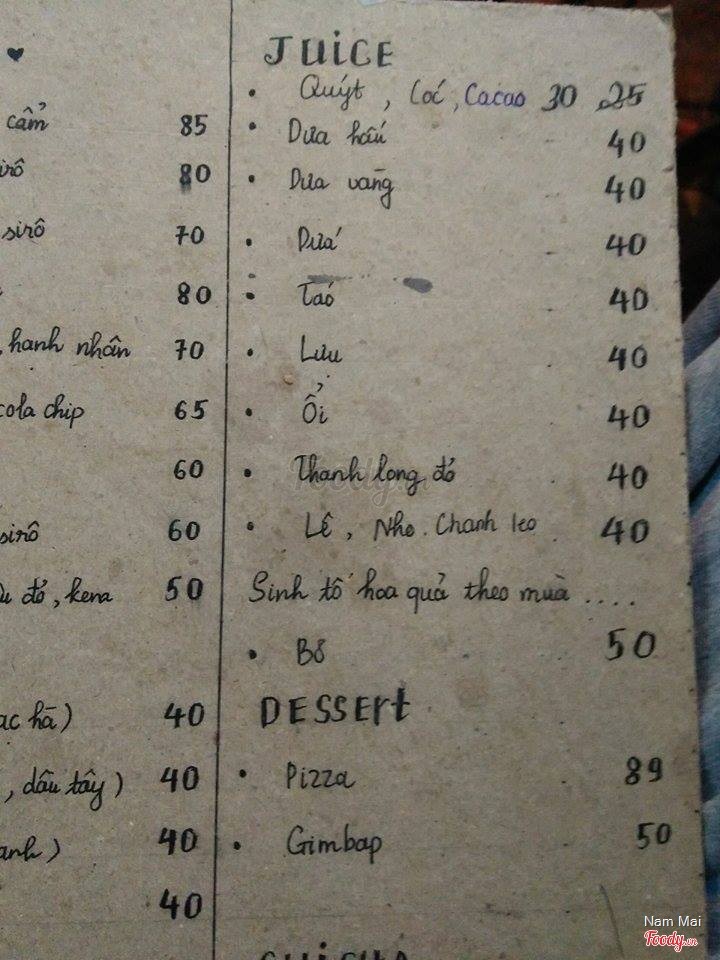 ♥
cẩm 85
irô 80
sirô 70
80
, hạnh nhân 70
cola chip 65
60
sirô 60
đỏ, kem 50
ạc hà) 40
, dâu tây) 40
anh) 40
40
JUICE
• Quýt, Cóc, Cacao 30, 25
• Dưa hấu 40
• Dưa vàng 40
• Dứa 40
• Táo 40
• Lựu 40
• Ổi 40
• Thanh long đỏ 40
• Lê, Nho. Chanh leo 40
Sinh tố hoa quả theo mùa ....
• Bơ 50
DESSERT
• Pizza 89
• Gimbap 50
Nam Mai
Foody.vn